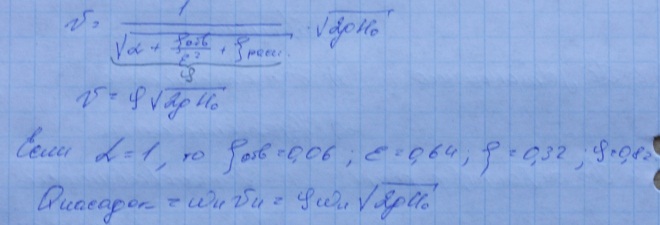 v = 1 / √(α + ζотв/ε² + ζрасш.) · √2gH₀
φ
v = φ√2gH₀
Если α=1, то ζотв=0,06; ε=0,64; ζ=0,32; φ=0,82
Qнасадок = ωн vн = φωн √2gH₀